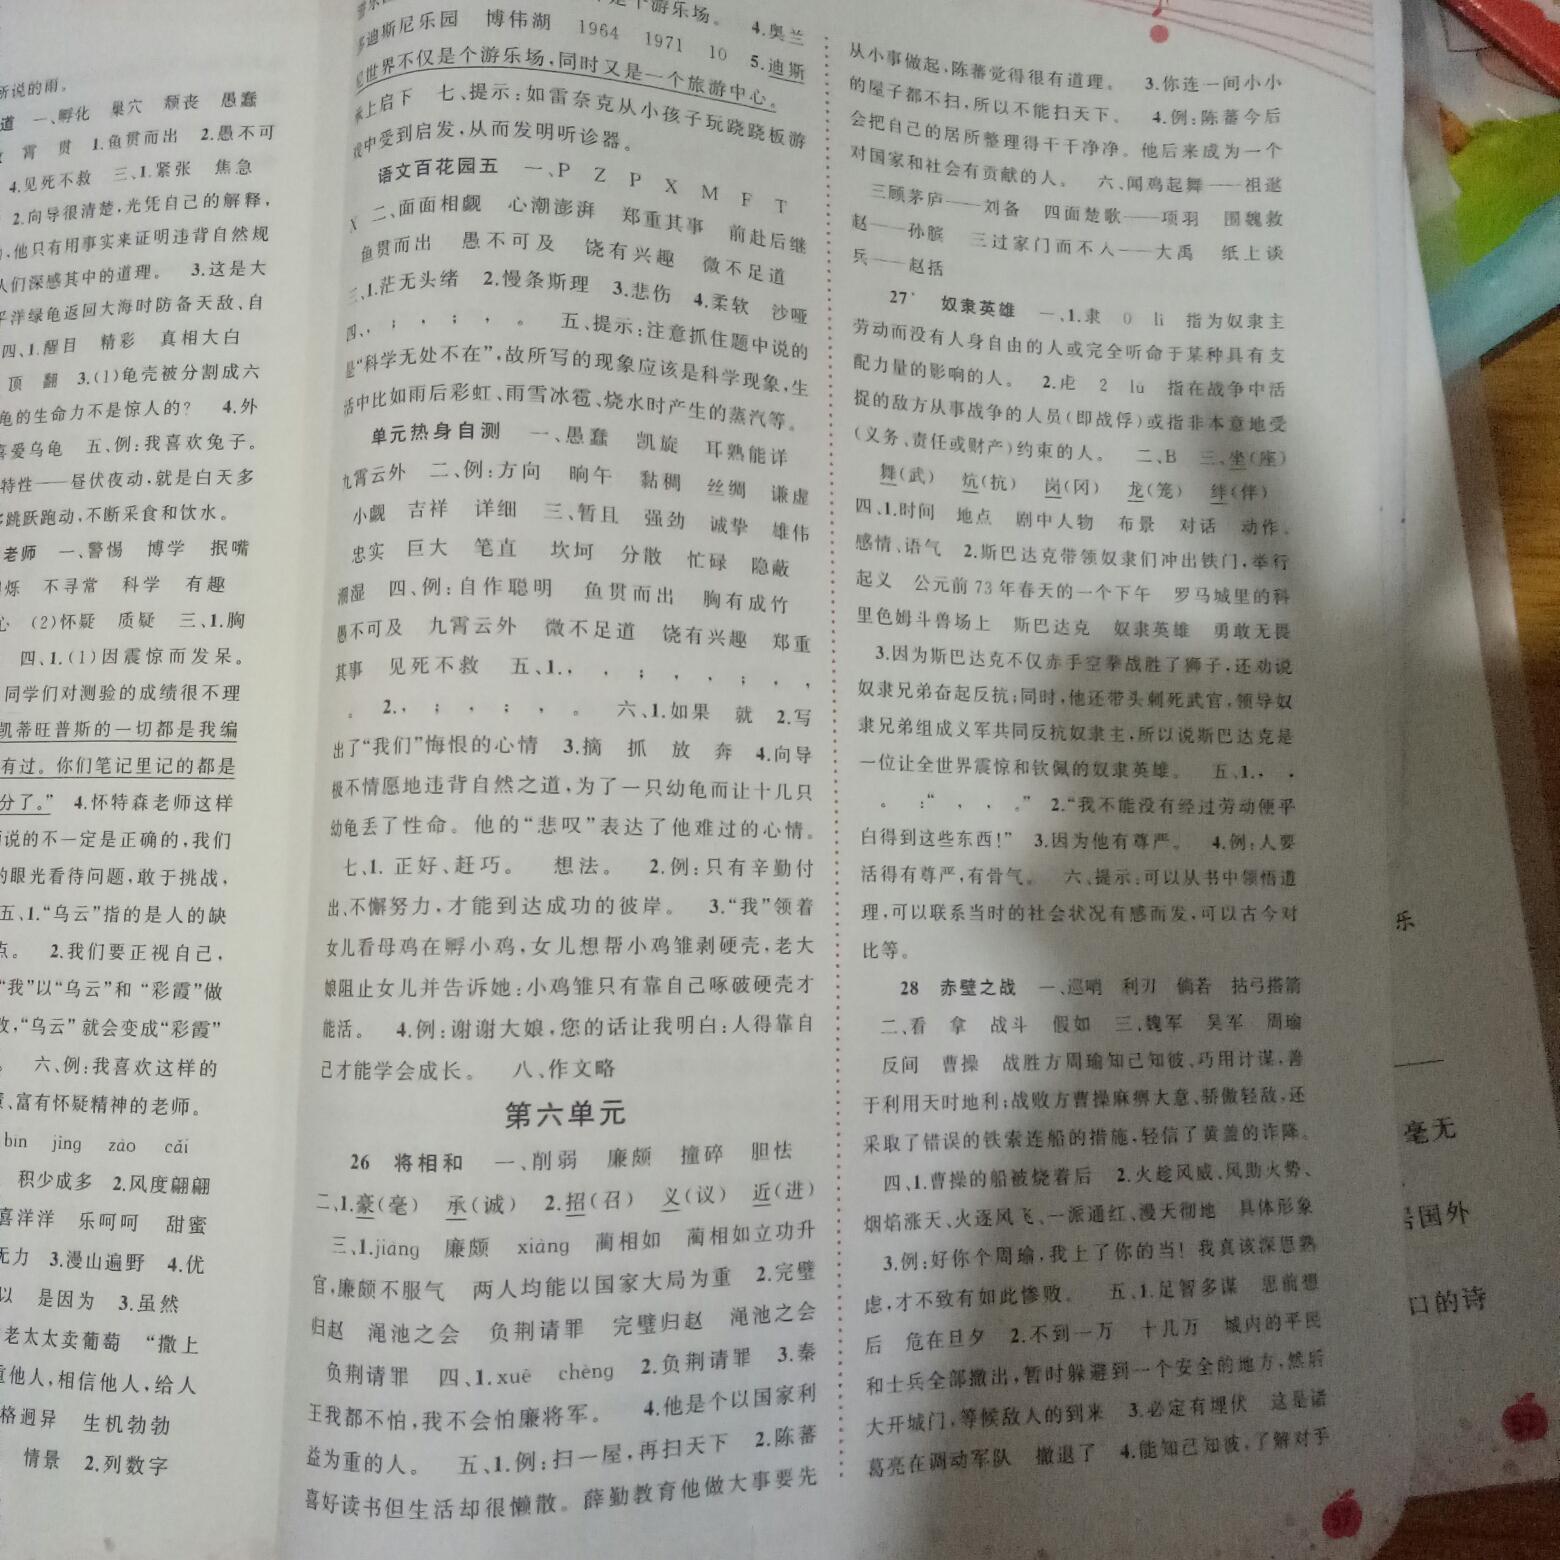 所说的雨。
道 一、孵化 巢穴 颓丧 愚蠢
霄 贯 1.鱼贯而出 2.愚不可
4.见死不救 三、1.紧张 焦急
2.向导很清楚,光凭自己的解释,
,他只有用事实来证明违背自然规
人们深感其中的道理。 3.这是大
平洋绿龟返回大海时防备天敌、自
四、1.醒目 精彩 真相大白
顶 翻 3.(1)龟壳被分割成六
龟的生命力不是惊人的? 4.外
喜爱乌龟 五、例:我喜欢兔子。
特性——昼伏夜动,就是白天多
跳跃跑动,不断采食和饮水。
老师 一、警惕 博学 抿嘴
烁 不寻常 科学 有趣
心 (2)怀疑 质疑 三、1.胸
四、1.(1)因震惊而发呆。
同学们对测验的成绩很不理
凯蒂旺普斯的一切都是我编
有过。你们笔记里记的都是
分了。” 4.怀特森老师这样
说的不一定是正确的,我们
的眼光看待问题,敢于挑战,
五、1.“乌云”指的是人的缺
点。 2.我们要正视自己,
“我”以“乌云”和 “彩霞”做
,“乌云” 就会变成“彩霞”
。 六、例:我喜欢这样的
、富有怀疑精神的老师。
bīn jīng zào cǎi
积少成多 2.风度翩翩
喜洋洋 乐呵呵 甜蜜
无力 3.漫山遍野 4.优
以 是因为 3.虽然
老太太卖葡萄 “撒上
他人,相信他人,给人
格迥异 生机勃勃
情景 2.列数字
是个游乐场。 4.奥兰
多迪斯尼乐园 博伟湖 1964 1971 10 5.迪斯
尼世界不仅是个游乐场,同时又是一个旅游中心。
承上启下 七、提示:如雷奈克从小孩子玩跷跷板游
戏中受到启发,从而发明听诊器。
语文百花园五 一、P Z P X M F T
X 二、面面相觑 心潮澎湃 郑重其事 前赴后继
鱼贯而出 愚不可及 饶有兴趣 微不足道
三、1.茫无头绪 2.慢条斯理 3.悲伤 4.柔软 沙哑
四、, ; , ; , 。 五、提示:注意抓住题中说的
是“科学无处不在”,故所写的现象应该是科学现象,生
活中比如雨后彩虹、雨雪冰雹、烧水时产生的蒸汽等。
单元热身自测 一、愚蠢 凯旋 耳熟能详
九霄云外 二、例:方向 晌午 黏稠 丝绸 谦虚
小觑 吉祥 详细 三、暂且 强劲 诚挚 雄伟
忠实 巨大 笔直 坎坷 分散 忙碌 隐蔽
潮湿 四、例:自作聪明 鱼贯而出 胸有成竹
愚不可及 九霄云外 微不足道 饶有兴趣 郑重
其事 见死不救 五、1., , ; , ; , ,
。 2., ; , ; , 。 六、1.如果 就 2.写
出了“我们”悔恨的心情 3.摘 抓 放 奔 4.向导
极不情愿地违背自然之道,为了一只幼龟而让十几只
幼龟丢了性命。他的“悲叹”表达了他难过的心情。
七、1. 正好、赶巧。 想法。 2.例:只有辛勤付
出、不懈努力,才能到达成功的彼岸。 3.“我”领着
女儿看母鸡在孵小鸡,女儿想帮小鸡雏剥硬壳,老大
娘阻止女儿并告诉她:小鸡雏只有靠自己啄破硬壳才
能活。 4.例:谢谢大娘,您的话让我明白:人得靠自
己才能学会成长。 八、作文略
第六单元
26 将相和 一、削弱 廉颇 撞碎 胆怯
二、1.豪(毫) 承(诚) 2.招(召) 义(议) 近(进)
三、1.jiāng 廉颇 xiàng 蔺相如 蔺相如立功升
官,廉颇不服气 两人均能以国家大局为重 2.完璧
归赵 渑池之会 负荆请罪 完璧归赵 渑池之会
负荆请罪 四、1.xuē chèng 2.负荆请罪 3.秦
王我都不怕,我不会怕廉将军。 4.他是个以国家利
益为重的人。 五、1.例:扫一屋,再扫天下 2.陈蕃
喜好读书但生活却很懒散。薛勤教育他做大事要先
从小事做起,陈蕃觉得很有道理。 3.你连一间小小
的屋子都不扫,所以不能扫天下。 4.例:陈蕃今后
会把自己的居所整理得干干净净。他后来成为一个
对国家和社会有贡献的人。 六、闻鸡起舞——祖逖
三顾茅庐——刘备 四面楚歌——项羽 围魏救
赵——孙膑 三过家门而不入——大禹 纸上谈
兵——赵括
27* 奴隶英雄 一、1.隶 0 lì 指为奴隶主
劳动而没有人身自由的人或完全听命于某种具有支
配力量的影响的人。 2.虍 2 lǔ 指在战争中活
捉的敌方从事战争的人员(即战俘)或指非本意地受
(义务、责任或财产)约束的人。 二、B 三、坐(座)
舞(武) 炕(抗) 岗(冈) 龙(笼) 绊(伴)
四、1.时间 地点 剧中人物 布景 对话 动作、
感情、语气 2.斯巴达克带领奴隶们冲出铁门,举行
起义 公元前73年春天的一个下午 罗马城里的科
里色姆斗兽场上 斯巴达克 奴隶英雄 勇敢无畏
3.因为斯巴达克不仅赤手空拳战胜了狮子,还劝说
奴隶兄弟奋起反抗;同时,他还带头刺死武官,领导奴
隶兄弟组成义军共同反抗奴隶主,所以说斯巴达克是
一位让全世界震惊和钦佩的奴隶英雄。 五、1., ,
。 :“ , , 。” 2.“我不能没有经过劳动便平
白得到这些东西!” 3.因为他有尊严。 4.例:人要
活得有尊严,有骨气。 六、提示:可以从书中领悟道
理,可以联系当时的社会状况有感而发,可以古今对
比等。
28 赤壁之战 一、巡哨 利刃 倘若 拈弓搭箭
二、看 拿 战斗 假如 三、魏军 吴军 周瑜
反间 曹操 战胜方周瑜知己知彼、巧用计谋,善
于利用天时地利;战败方曹操麻痹大意、骄傲轻敌,还
采取了错误的铁索连船的措施,轻信了黄盖的诈降。
四、1.曹操的船被烧着后 2.火趁风威、风助火势、
烟焰涨天、火逐风飞、一派通红、漫天彻地 具体形象
3.例:好你个周瑜,我上了你的当! 我真该深思熟
虑,才不致有如此惨败。 五、1.足智多谋 思前想
后 危在旦夕 2.不到一万 十几万 城内的平民
和士兵全部撤出,暂时躲避到一个安全的地方,然后
大开城门,等候敌人的到来 3.必定有埋伏 这是诸
葛亮在调动军队 撤退了 4.能知己知彼,了解对手
乐
毫无
居国外
口的诗